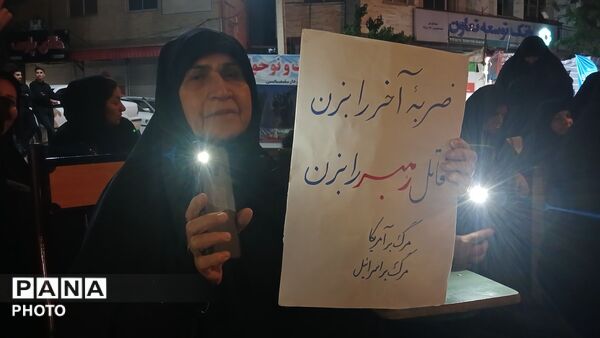 ضربهٔ آخر را بزن
قاتل رهبر را بزن
مرگ بر آمریکا
مرگ بر اسرائیل
بانک توسعه تعاون
PANA
PHOTO